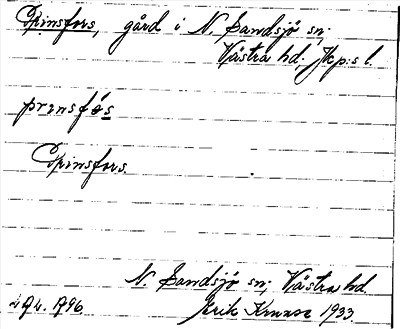 Prinsfors, gård i N. Sandsjö sn;
Västra hd; Jkp:s l.
prɪnsfɵs
Prinsfors.
N. Sandsjö sn; Västra hd.
Erik 1933.